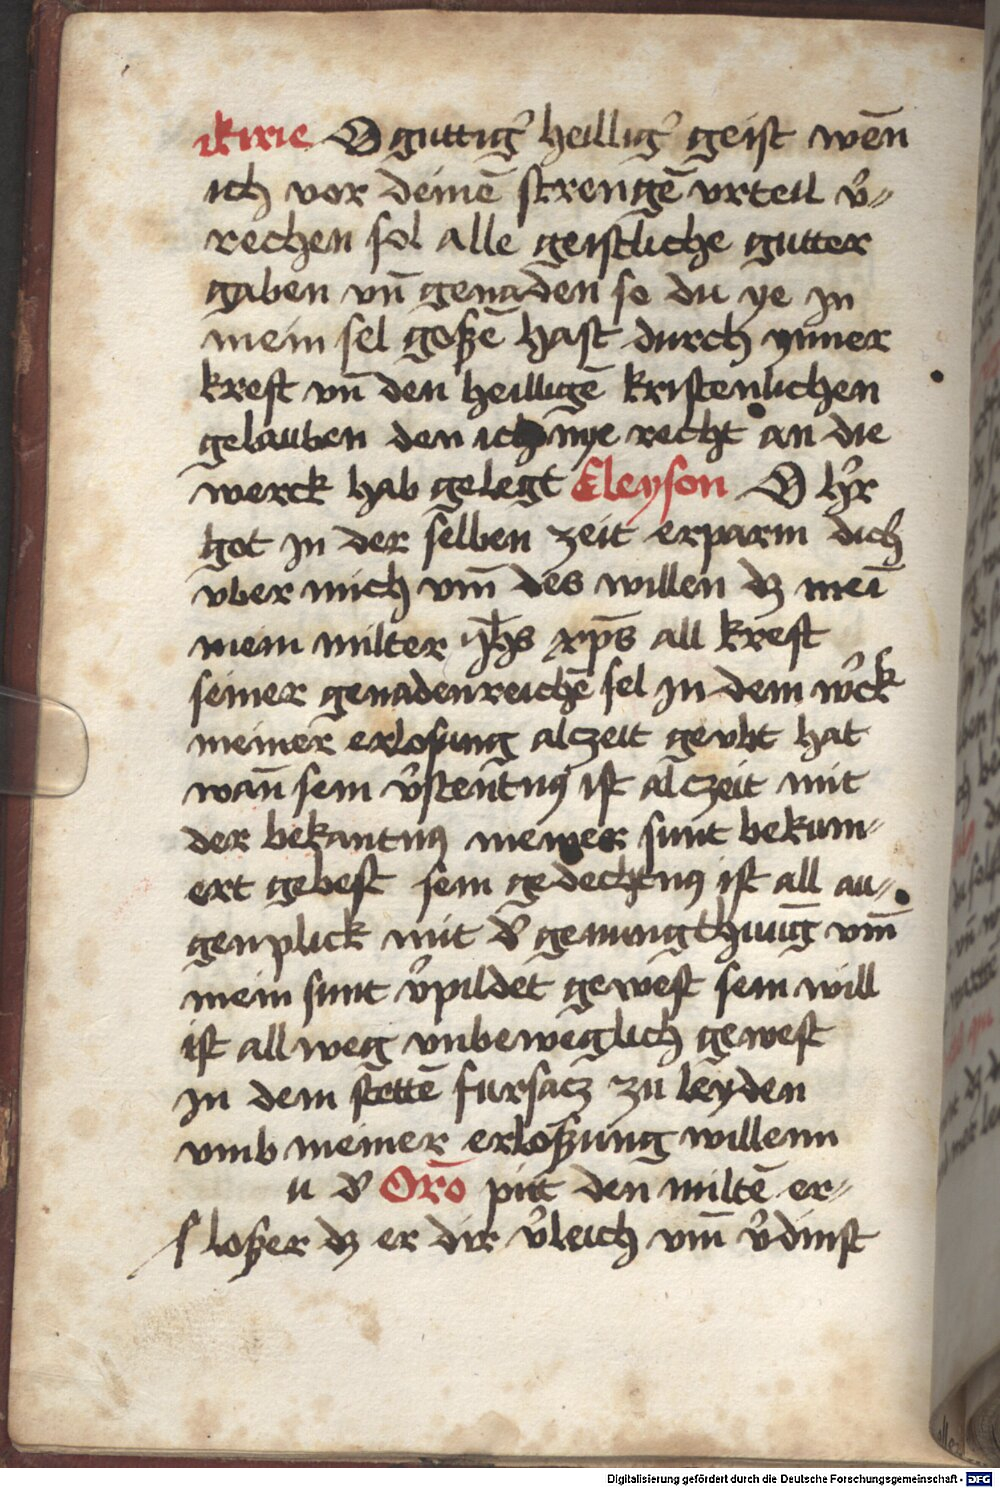 kirie O guttig᷑ heillig᷑ geist wen̄
ich vor deinē strengē vrteil v᷑-
rechen sol alle geistliche gutter
gaben vn̄ genaden so du ye in
mein sel goßē hast durch ynner
kreft vn̄ den heilligē kristenlichen
gelauben den ich nye recht an die
werck hab gelegt Eleyson O h᷑r
got in der selben zeit erparm dich
vber mich vm̄ des willen dz mei
mein milter ihs xp̄s all kreft
seiner genadenreichē sel in dem w᷑ck
meiner erlosung alczeit geubt hat
wan̄ sein v᷑stentnuß ist alczeit mit
der bekantnuß meiner sunt bekum-
ert gebest sein gedechtnuß ist all au-
genplick mit d᷑ genungthuūg vm̄
mein sunt v᷑pildet gewest sein will
ist allweg vnbeweglich gewest
in dem stettē fursacz zu leyden
vmb meiner erloßung willenn
u d᷑ Orō pitt den miltē er-
loßer dz er dir v᷑leich vm̄ v᷑dinst
Digitalisierung gefördert durch die Deutsche Forschungsgemeinschaft - DFG